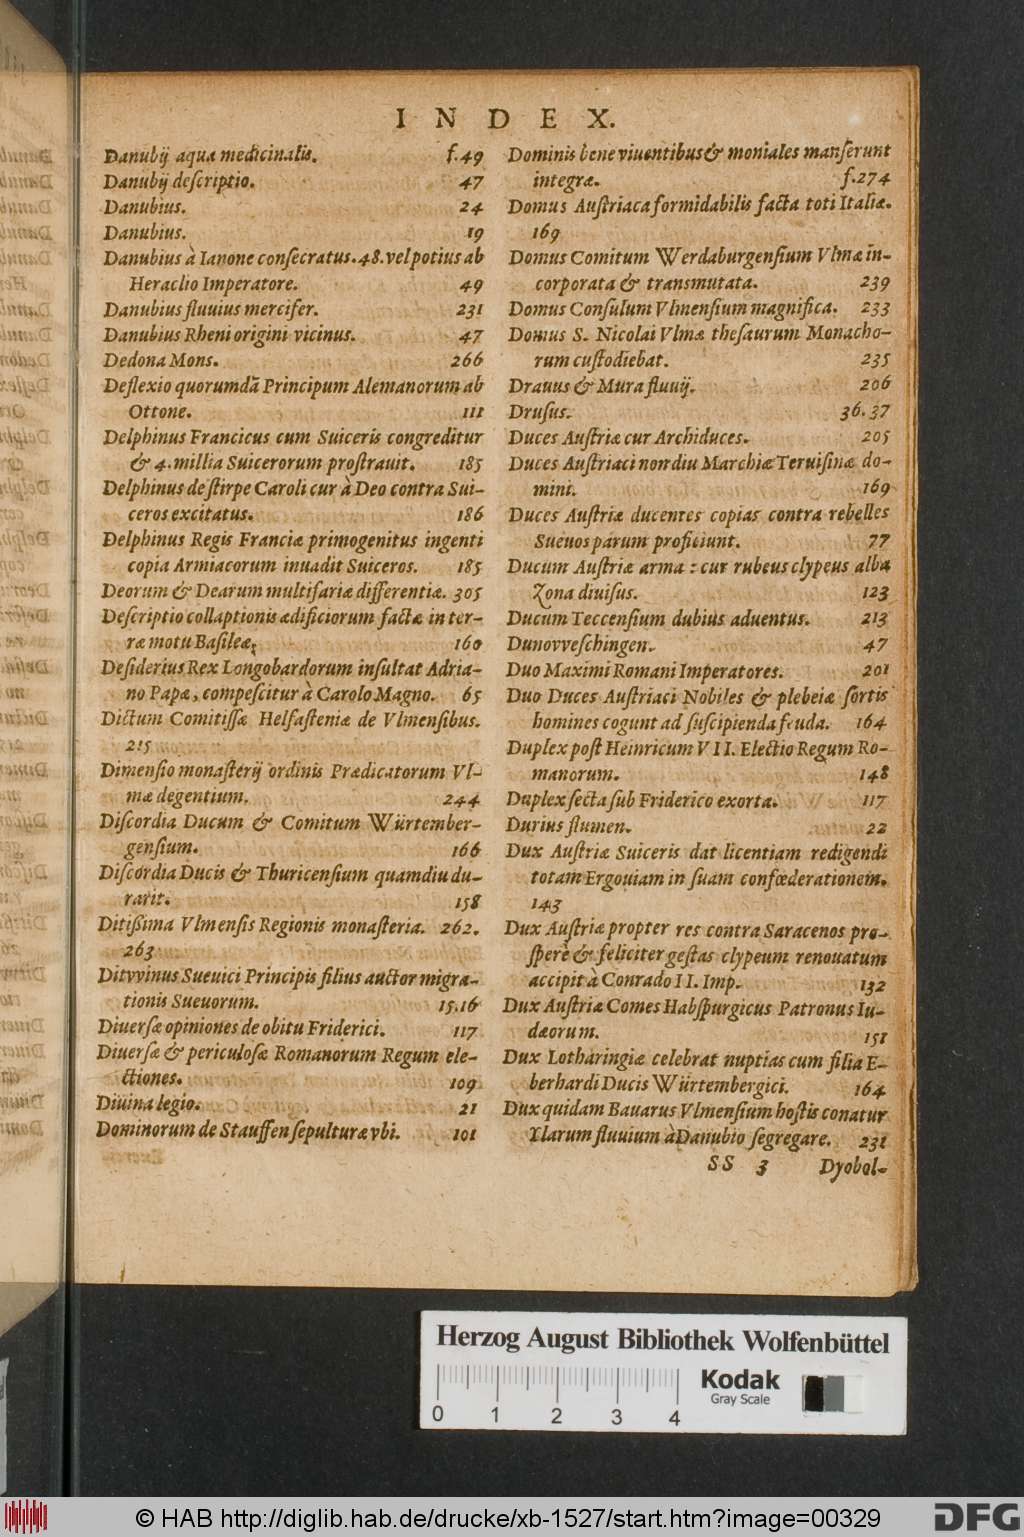 INDEX.
Danubij aqua medicinalis. f.49
Danubij deſcriptio. 47
Danubius. 24
Danubius. 19
Danubius à Ianone conſecratus.48.vel potius ab
Heraclio Imperatore. 49
Danubius fluuius mercifer. 231
Danubius Rheni origini vicinus. 47
Dedona Mons. 266
Deflexio quorumdã Principum Alemanorum ab
Ottone. 111
Delphinus Francicus cum Suiceris congreditur
& 4.millia Suicerorum proſtrauit. 185
Delphinus de ſtirpe Caroli cur à Deo contra Sui-
ceros excitatus. 186
Delphinus Regis Franciæ primogenitus ingenti
copia Armiacorum inuadit Suiceros. 185
Deorum & Dearum multifariæ differentiæ. 305
Deſcriptio collaptionis ædificiorum factæ in ter-
ræ motu Baſileæ; 160
Deſiderius Rex Longobardorum inſultat Adria-
no Papæ, compeſcitur à Carolo Magno. 65
Dictum Comitiſſæ Helfaſteniæ de Vlmenſibus.
215
Dimenſio monaſterij ordinis Prædicatorum Vl-
mæ degentium. 244
Diſcordia Ducum & Comitum Würtember-
genſium. 166
Diſcordia Ducis & Thuricenſium quamdiu du-
rarit. 158
Ditißima Vlmenſis Regionis monaſteria. 262.
263
Dityvinus Sueuici Principis filius auctor migra-
tionis Sueuorum. 15.16
Diuerſæ opiniones de obitu Friderici. 117
Diuerſæ & periculoſæ Romanorum Regum ele-
ctiones. 109
Diuina legio. 21
Dominorum de Stauffen ſepulturæ vbi. 101
Dominis bene viuentibus & moniales manſerunt
integræ. f.274
Domus Auſtriaca formidabilis facta toti Italiæ.
169
Domus Comitum Werdaburgenſium Vlmæ in-
corporata & transmutata. 239
Domus Conſulum Vlmenſium magnifica. 233
Domus S. Nicolai Vlmæ theſaurum Monacho-
rum cuſtodiebat. 235
Drauus & Mura fluuij. 206
Druſus. 36.37
Duces Auſtriæ cur Archiduces. 205
Duces Auſtriaci non diu Marchiæ Teruiſinæ do-
mini. 169
Duces Auſtriæ ducentes copias contra rebelles
Sueuos parum proficiunt. 77
Ducum Auſtriæ arma : cur rubeus clypeus alba
Zona diuiſus. 123
Ducum Teccenſium dubius aduentus. 213
Dunovveſchingen. 47
Duo Maximi Romani Imperatores. 201
Duo Duces Auſtriaci Nobiles & plebeiæ ſortis
homines cogunt ad ſuſcipienda feuda. 164
Duplex poſt Heinricum VII. Electio Regum Ro-
manorum. 148
Duplex ſecta ſub Friderico exorta. 117
Durius flumen. 22
Dux Auſtriæ Suiceris dat licentiam redigendi
totam Ergouiam in ſuam confœderationem.
143
Dux Auſtriæ propter res contra Saracenos pro-
ſperè & feliciter geſtas clypeum renouatum
accipit à Conrado II. Imp. 132
Dux Auſtriæ Comes Habſpurgicus Patronus Iu-
dæorum. 151
Dux Lotharingiæ celebrat nuptias cum filia E-
berhardi Ducis Würtembergici. 164
Dux quidam Bauarus Vlmenſium hoſtis conatur
Ylarum fluuium à Danubio ſegregare. 231
SS 3 Dyobol-
Herzog August Bibliothek Wolfenbüttel
Kodak
Gray Scale
0 1 2 3 4
© HAB http://diglib.hab.de/drucke/xb-1527/start.htm?image=00329
DFG